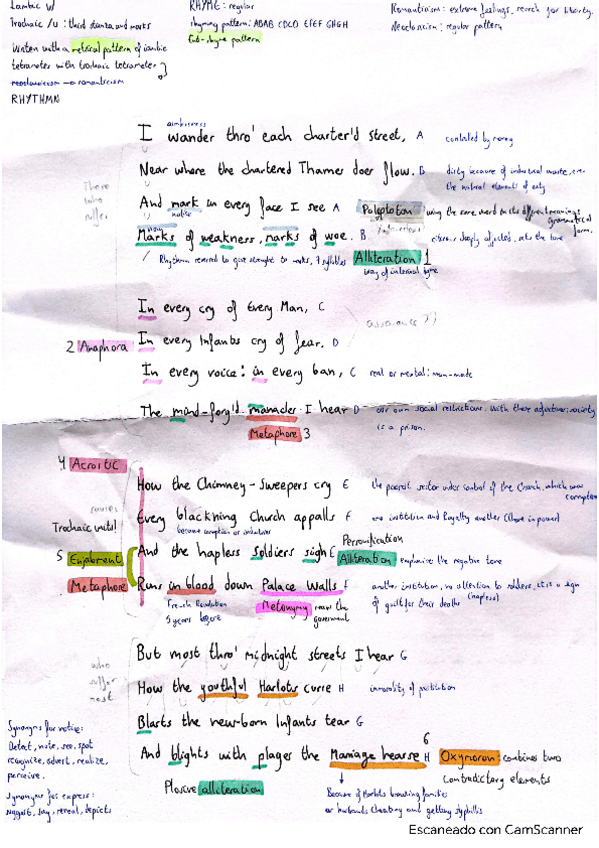 Iambic U/
Trochaic /U : third stanza and marks
Written with a metrical pattern of iambic
tetrameter with trochaic tetrameter
neoclassicism → romanticism
RHYTHM
RHYME: regular
rhyming pattern: ABAB CDCD EFEF GHGH
Romanticism: extreme feelings, search for liberty.
Neoclassicism: regular pattern
aimlessness
I wander thro' each charter'd street, A controlled by money
Near where the chartered Thames does flow. B dirty because of industrial waste, even
the natural elements of
Those who suffer
And mark in every face I see A Polyptoton: using the same word in different meaning/
notice
grammatical form.
noun
Marks of weakness, marks of woe. B citizens deeply affected, sets the tone
Rhythm reversed to give strength to marks, 7 syllables Alliteration 1
way of internal rhyme
In every cry of Every Man, C
assonance ??
2 Anaphora In every Infants cry of fear, D
In every voice: in every ban, C real or mental: man-made
The mind-forg'd manacles I hear D our own social restrictions. With these adjectives, society
is a prison.
Metaphore 3
4 Acrostic
How the Chimney-Sweepers cry E the poorest sector under control of the Church, which was
corruption
Every blackning Church appalls F one institution and Royalty another (those in power)
Trochaic until
become corruption or
Personification
5 Enjabment And the hapless Soldiers sigh E Alliteration emphasise the negative tone
Metaphore Runs in blood down Palace Walls F another institution, no attention to soldiers, it is a sign
of guilt for their deaths (hapless)
French Revolution
3 years before
Metonymy means the
government
But most thro' midnight streets I hear G
who suffer most
How the youthful Harlots curse H immorality of prostitution
Blasts the new-born Infants tear G
6
And blights with plages the Marriage hearse H Oxymoron: combines two
contradictory elements
Plosive alliteration
Because of Harlots breaking families
or husbands cheating and getting syphilis
Synonyms for notice:
Detect, note, see, spot
recognize, advert, realize,
perceive.
Synonyms for express:
suggest, say, reveal, depicts
Escaneado con CamScanner